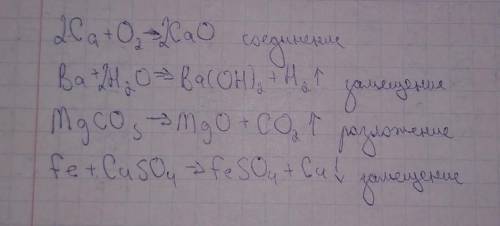 2Ca + O₂ → 2CaO соединение
Ba + 2H₂O → Ba(OH)₂ + H₂↑ замещение
MgCO₃ → MgO + CO₂↑ разложение
Fe + CuSO₄ → FeSO₄ + Cu↓ замещение